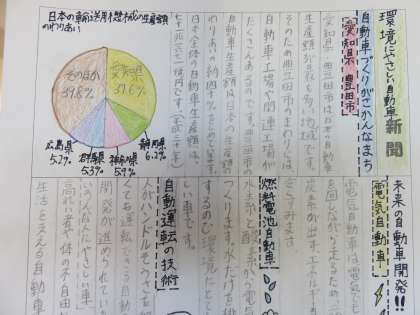 環境にやさしい自動車新聞
自動車づくりがさかんなまち
愛知県 豊田市
愛知県 豊田市は日本の自動車
生産額が日本一多い地域です。
そのため豊田市のまわりには
自動車工場や関連工場が
たくさんあるのです。
自動車生産額は日本の生産
日本全体の自動車生産額は、
日本の輸送用機械の生産額
のわりあい
愛知県
37.6%
静岡県
6.2%
神奈川県
5.9%
群馬県
5.3%
広島県
5.2%
そのほか
39.8%
未来の自動車開発!!
電気自動車
電気自動車は電気でモ
を回して走るため、二
炭素が出ず、エネルギ
燃料電池自動車
水素と酸素から電気
つくります。水だけを排
するので環境にとて
です。
自動運転の技術
人がハンドルそうさを
くても運転する自動
開発が進められてい
高れい者や体の不自由
生活を支える自動車